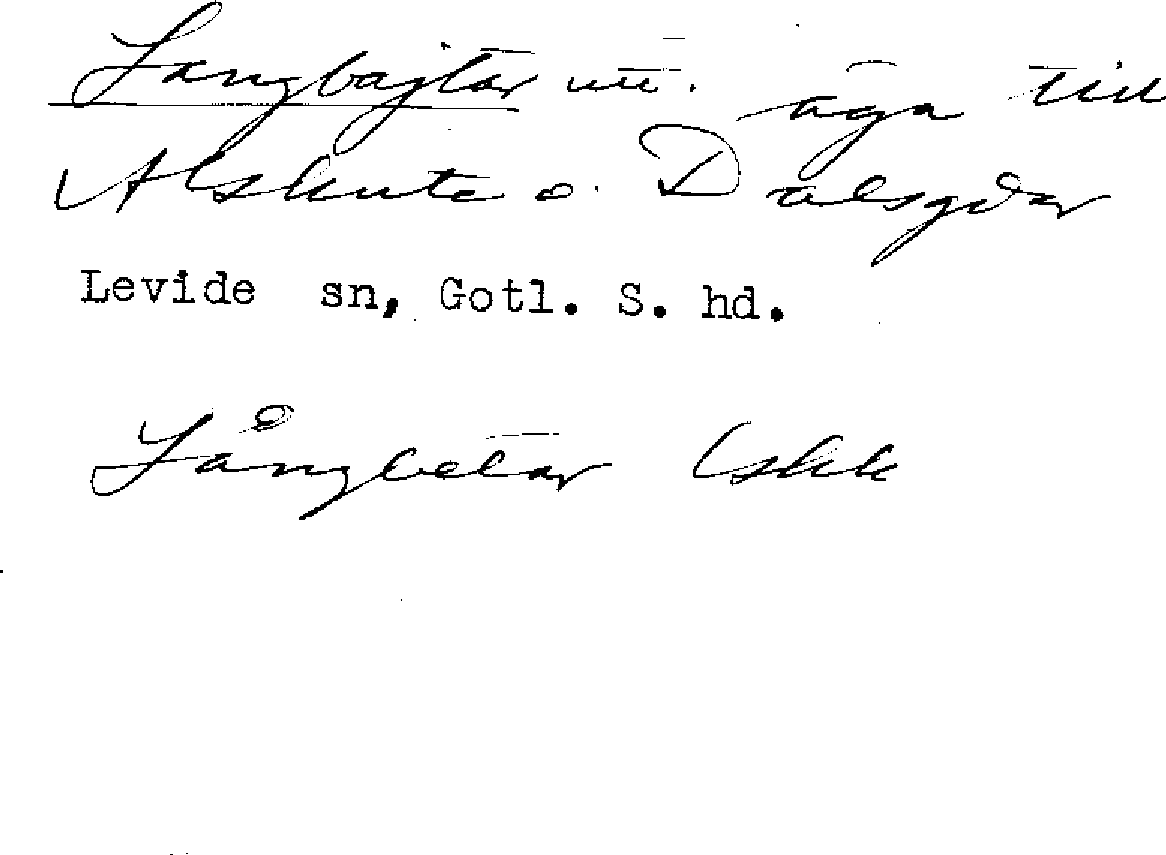 Langbajtar utr. äga till
Alskute o. Dalsgdar
Levide sn, Gotl. S. hd.
Långbetar Uskk